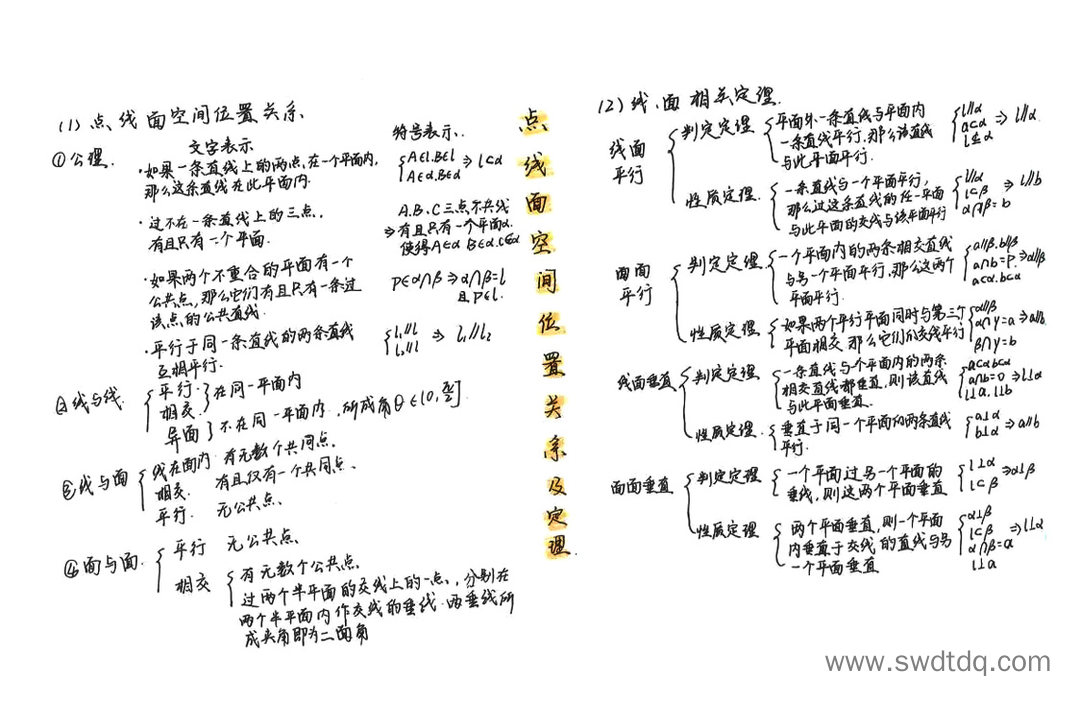 点线面空间位置关系及定理
(1) 点、线 面空间位置关系.
①公理.
文字表示
符号表示.
·如果一条直线上的两点,在一个平面内,
那么这条直线在此平面内.
{A∈l.B∈l
A∈α.B∈α ⇒ l⊂α
·过不在一条直线上的三点,
有且只有一个平面.
A.B.C三点不共线
⇒有且只有一个平面α.
使得A∈α B∈α.C∈α
·如果两个不重合的平面有一个
公共点,那么它们有且只有一条过
该点的公共直线.
P∈α∩β⇒α∩β=l
且P∈l.
·平行于同一条直线的两条直线
互相平行.
{l₁∥l
l₂∥l ⇒ l₁∥l₂
②线与线.
{平行.
相交 }在同一平面内
异面 }不在同一平面内.所成角θ∈(0,π/2]
③线与面
{线在面内 有无数个共同点.
相交. 有且仅有一个共同点.
平行. 无公共点.
④面与面.
{平行 无公共点.
相交
{有无数个公共点.
过两个半平面的交线上的一点,分别在
两个半平面内作交线的垂线.两垂线所
成夹角即为二面角
(2) 线、面 相关定理.
线面
平行
判定定理
{平面外一条直线与平面内
一条直线平行.那么该直线
与此平面平行.
{l∥a
a⊂α
l⊄α ⇒ l∥α.
性质定理.
{一条直线与一个平面平行,
那么过这条直线的任一平面
与此平面的交线与该平面平行
{l∥α
l⊂β
α∩β=b ⇒ l∥b
面面
平行
判定定理
{一个平面内的两条相交直线
与另一个平面平行.那么这两个
平面平行.
{a∥β.b∥β
a∩b=P.
a⊂α.b⊂α ⇒α∥β
性质定理
{如果两个平行平面同时与第三个
平面相交 那么它们的交线平行
{α∥β
α∩γ=a
β∩γ=b ⇒a∥b.
线面垂直
判定定理
{一条直线与个平面内的两条
相交直线都垂直.则该直线
与此平面垂直.
{a⊂α b⊂α
a∩b=O
l⊥a.l⊥b ⇒l⊥α
性质定理
{垂直于同一个平面的两条直线
平行.
{a⊥α
b⊥α ⇒ a∥b
面面垂直
判定定理
{一个平面过另一个平面的
垂线,则这两个平面垂直
{l⊥α
l⊂β ⇒α⊥β
性质定理
{两个平面垂直,则一个平面
内垂直于交线的直线与另
一个平面垂直
{α⊥β
l⊂β
α∩β=a
l⊥a ⇒l⊥α
www.swdtdq.com